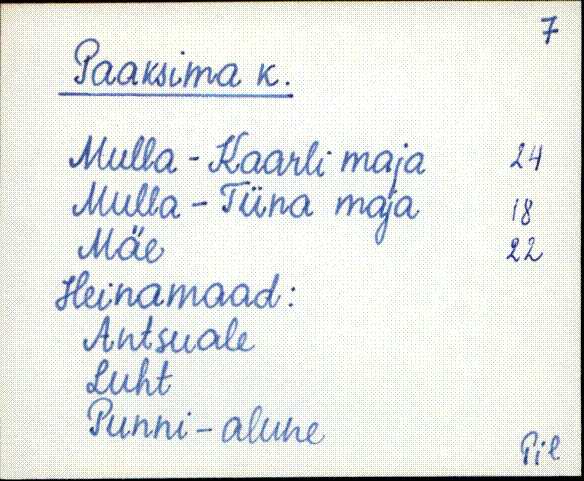 7
Paaksima k.
Mulla-Kaarli maja 24
Mulla-Tiina maja 18
Mäe 22
Heinamaad:
Antsuale
Luht
Punni-alune
Pil